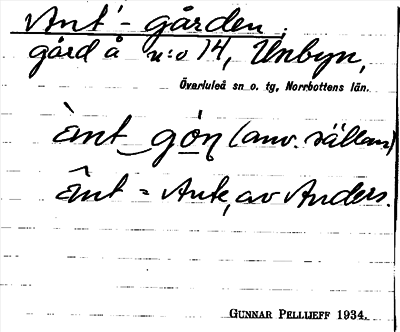 Ant'-gården,
gård å n:o 14, Unbyn,
Överluleå sn o. tg, Norrbottens län.
ànt gón (anv. sällan)
ânt = Ante, av Anders.
GUNNAR PELLIJEFF 1934.